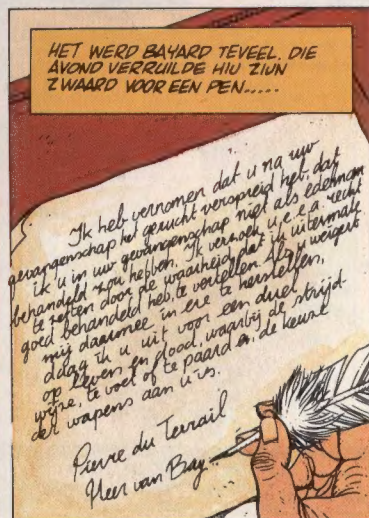 HET WERD BAYARD TEVEEL. DIE
AVOND VERRUILDE HIJ ZIJN
ZWAARD VOOR EEN PEN.....
Ik heb vernomen dat u na uw
gevangenschap het gerucht verspreid heb, dat
ik u in uw gevangenschap niet als edelman
behandeld zou hebben. Ik verzoek u, e.e.a. recht
te zetten door de waarheid, dat ik u uitermate
goed behandeld heb, te vertellen. Als u weigert
mij daarmee in ere te herstellen,
daag ik u uit voor een duel
op leven en dood, waarbij de strijd-
wijze, te voet of te paard en de keuze
der wapens aan u is.
Pierre du Terrail
Heer van Bay